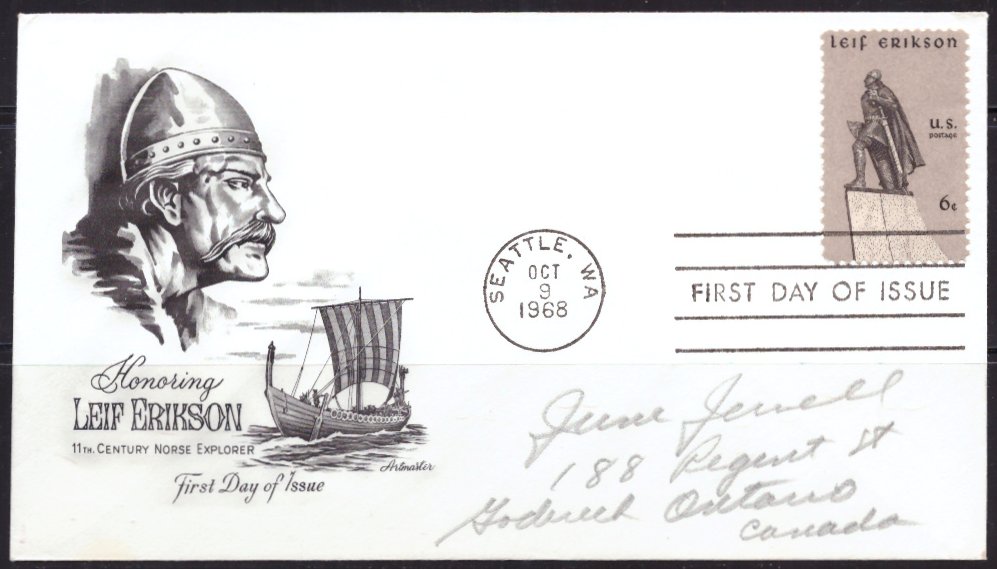 LEIF ERIKSON
U.S.
postage
6¢
SEATTLE, WA
OCT
9
1968
FIRST DAY OF ISSUE
Honoring
LEIF ERIKSON
11TH. CENTURY NORSE EXPLORER
First Day of Issue
Artmaster
June Jewell
188 Regent St
Goderich Ontario
Canada